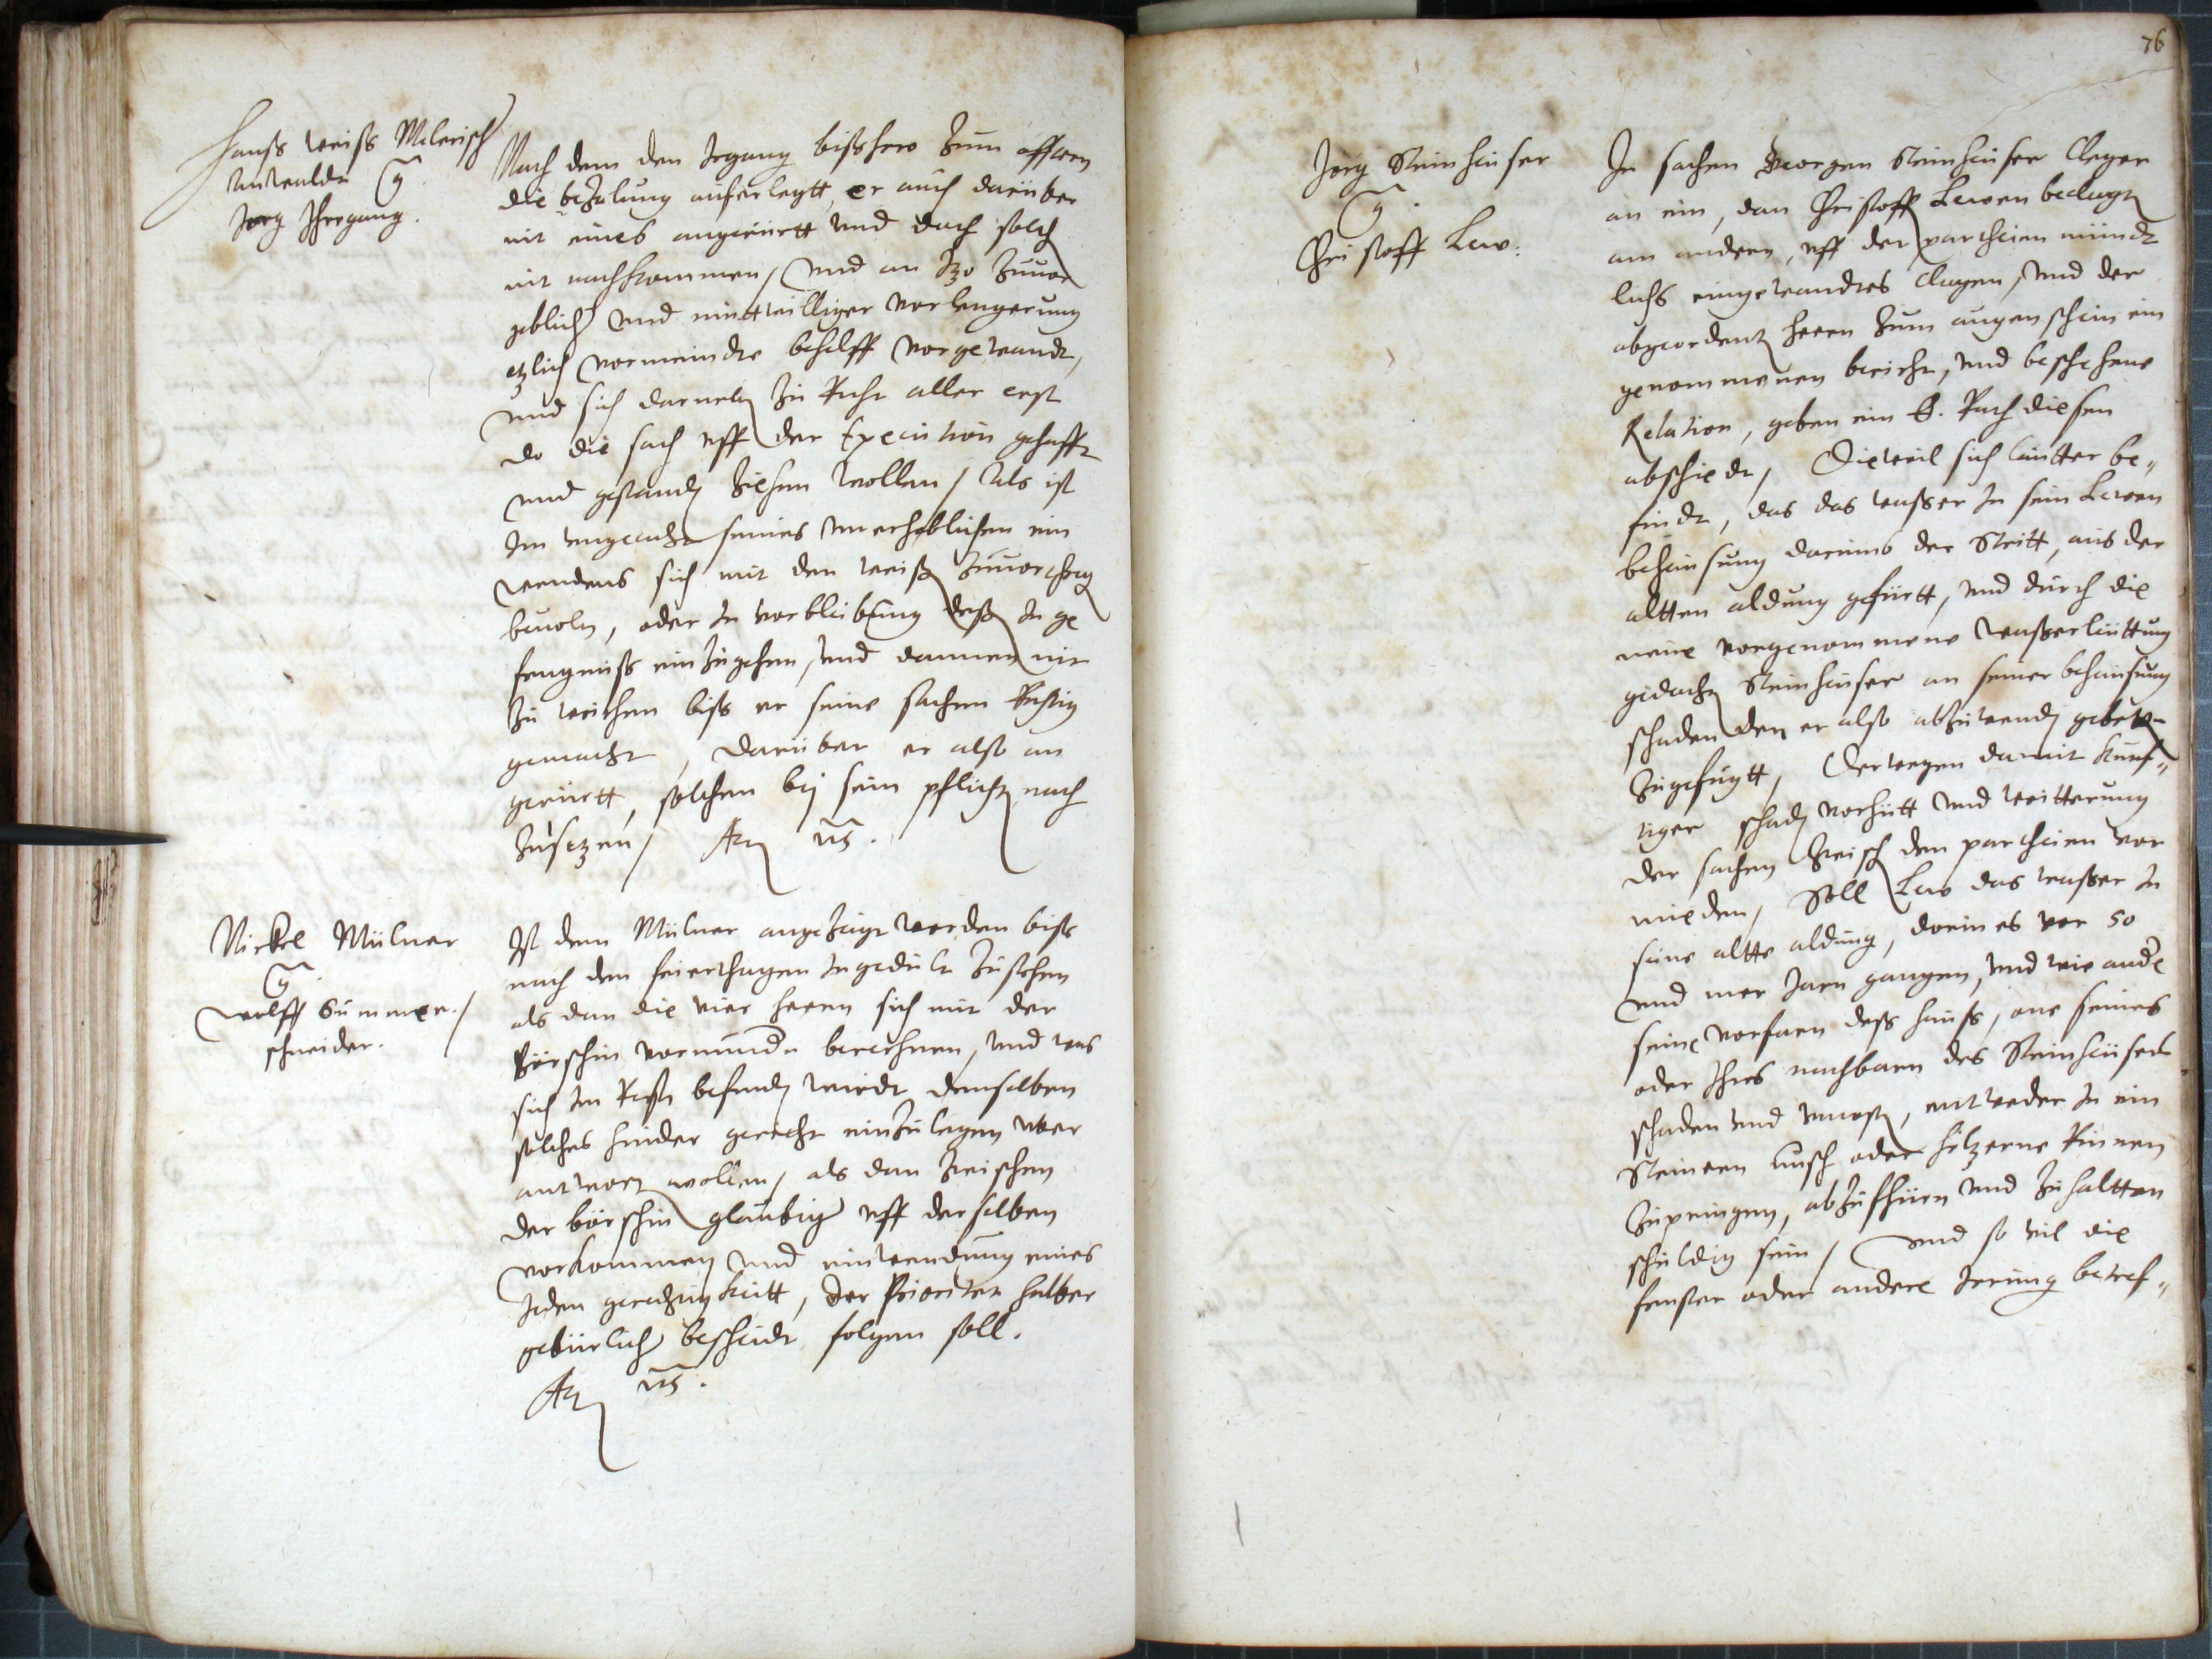 Hanß Weiß Milerisch
Anwaldt
Jorg Jhrgang.
Nach dem den Irgang bißhero zum offtern
die bezalung auferlegtt, er auch darüber
nit eines angerürtt und doch solch
nit nachkommen, und an Izo zuuor
geblich und mutwilliger vorlengerung
ezlich vormeindte behelff vorgewandt,
und sich darneben zu Recht aller erst
do die sach uff der Execution gehafft
und gestanden ziehen wollen, Als ist
Im ungeacht seines unerheblichen ein
wendens sich mit den Weiß zuuortrag
beuoln, oder In vorbleibung deß In ge
fengnuß einzugehen, und dannen nit
zu weichen biß er seine sachen Richtig
gemacht, darüber er also an
gerürtt, solchem bej sein pflicht nach
zusezen, Act us.
Nickel Mülner
Wolff Summer
schneider.
Ist dem Mülner angezeigt worden biß
nach den feierthagen In gedult zu stehen
als dan die vier herrn sich mit der
Pörschin vormunde berechnen, und was
sich Im Rest befinden wirdt demselben
solches hinder gericht einzulegen
antwort wollen, als dan zwischen
der börschin glaubiger uff derselben
vorkommen und einwendung eines
Jeden gerechtigkeitt, der Prioritet halber
gebürlicher bescheidt folgen soll.
Act us.
76
Jorg Steinheuser
Christoff Lew.
In sachen Georgen Steinheuser Cleger
an ein, dan Christoff Lewen beclagt
am andern, uff der partheien mündt
lichs eingewandtes clagen, und der
abgeordent herrn zum augenschein ein
genommenen bericht, und beschehene
Relation, geben ein E. Rath diesen
abschiedt, Dieweil sich lautter be„
findt, das das wasser In sein Lewen
behausung darumb der Stritt, aus der
altten aldung gefürtt, und durch die
neue vorgenommene wasserleittung
gedacht Steinheuser an seiner behausung
schaden den er also abzuwenden gebeten
zugefügtt, Derwegen damit künf„
tiger schaden vorhütt und weitterung
der sachen zwischen den partheien vor
mieden, Soll Lew das wasser In
seine altte aldung, dorin es vor 50
und mer Jarn gangen, und wie ande
seine vorfarn deß hauß, one seines
oder Ihres nachbarn des Steinheusers
schaden und unrath, entweder In ein
Steinern Kusch oder hilzerne Rinnen
zupringen, abzufhürn und zuhaltten
schuldig sein, und so vil die
fenster oder andere Irrung betref„